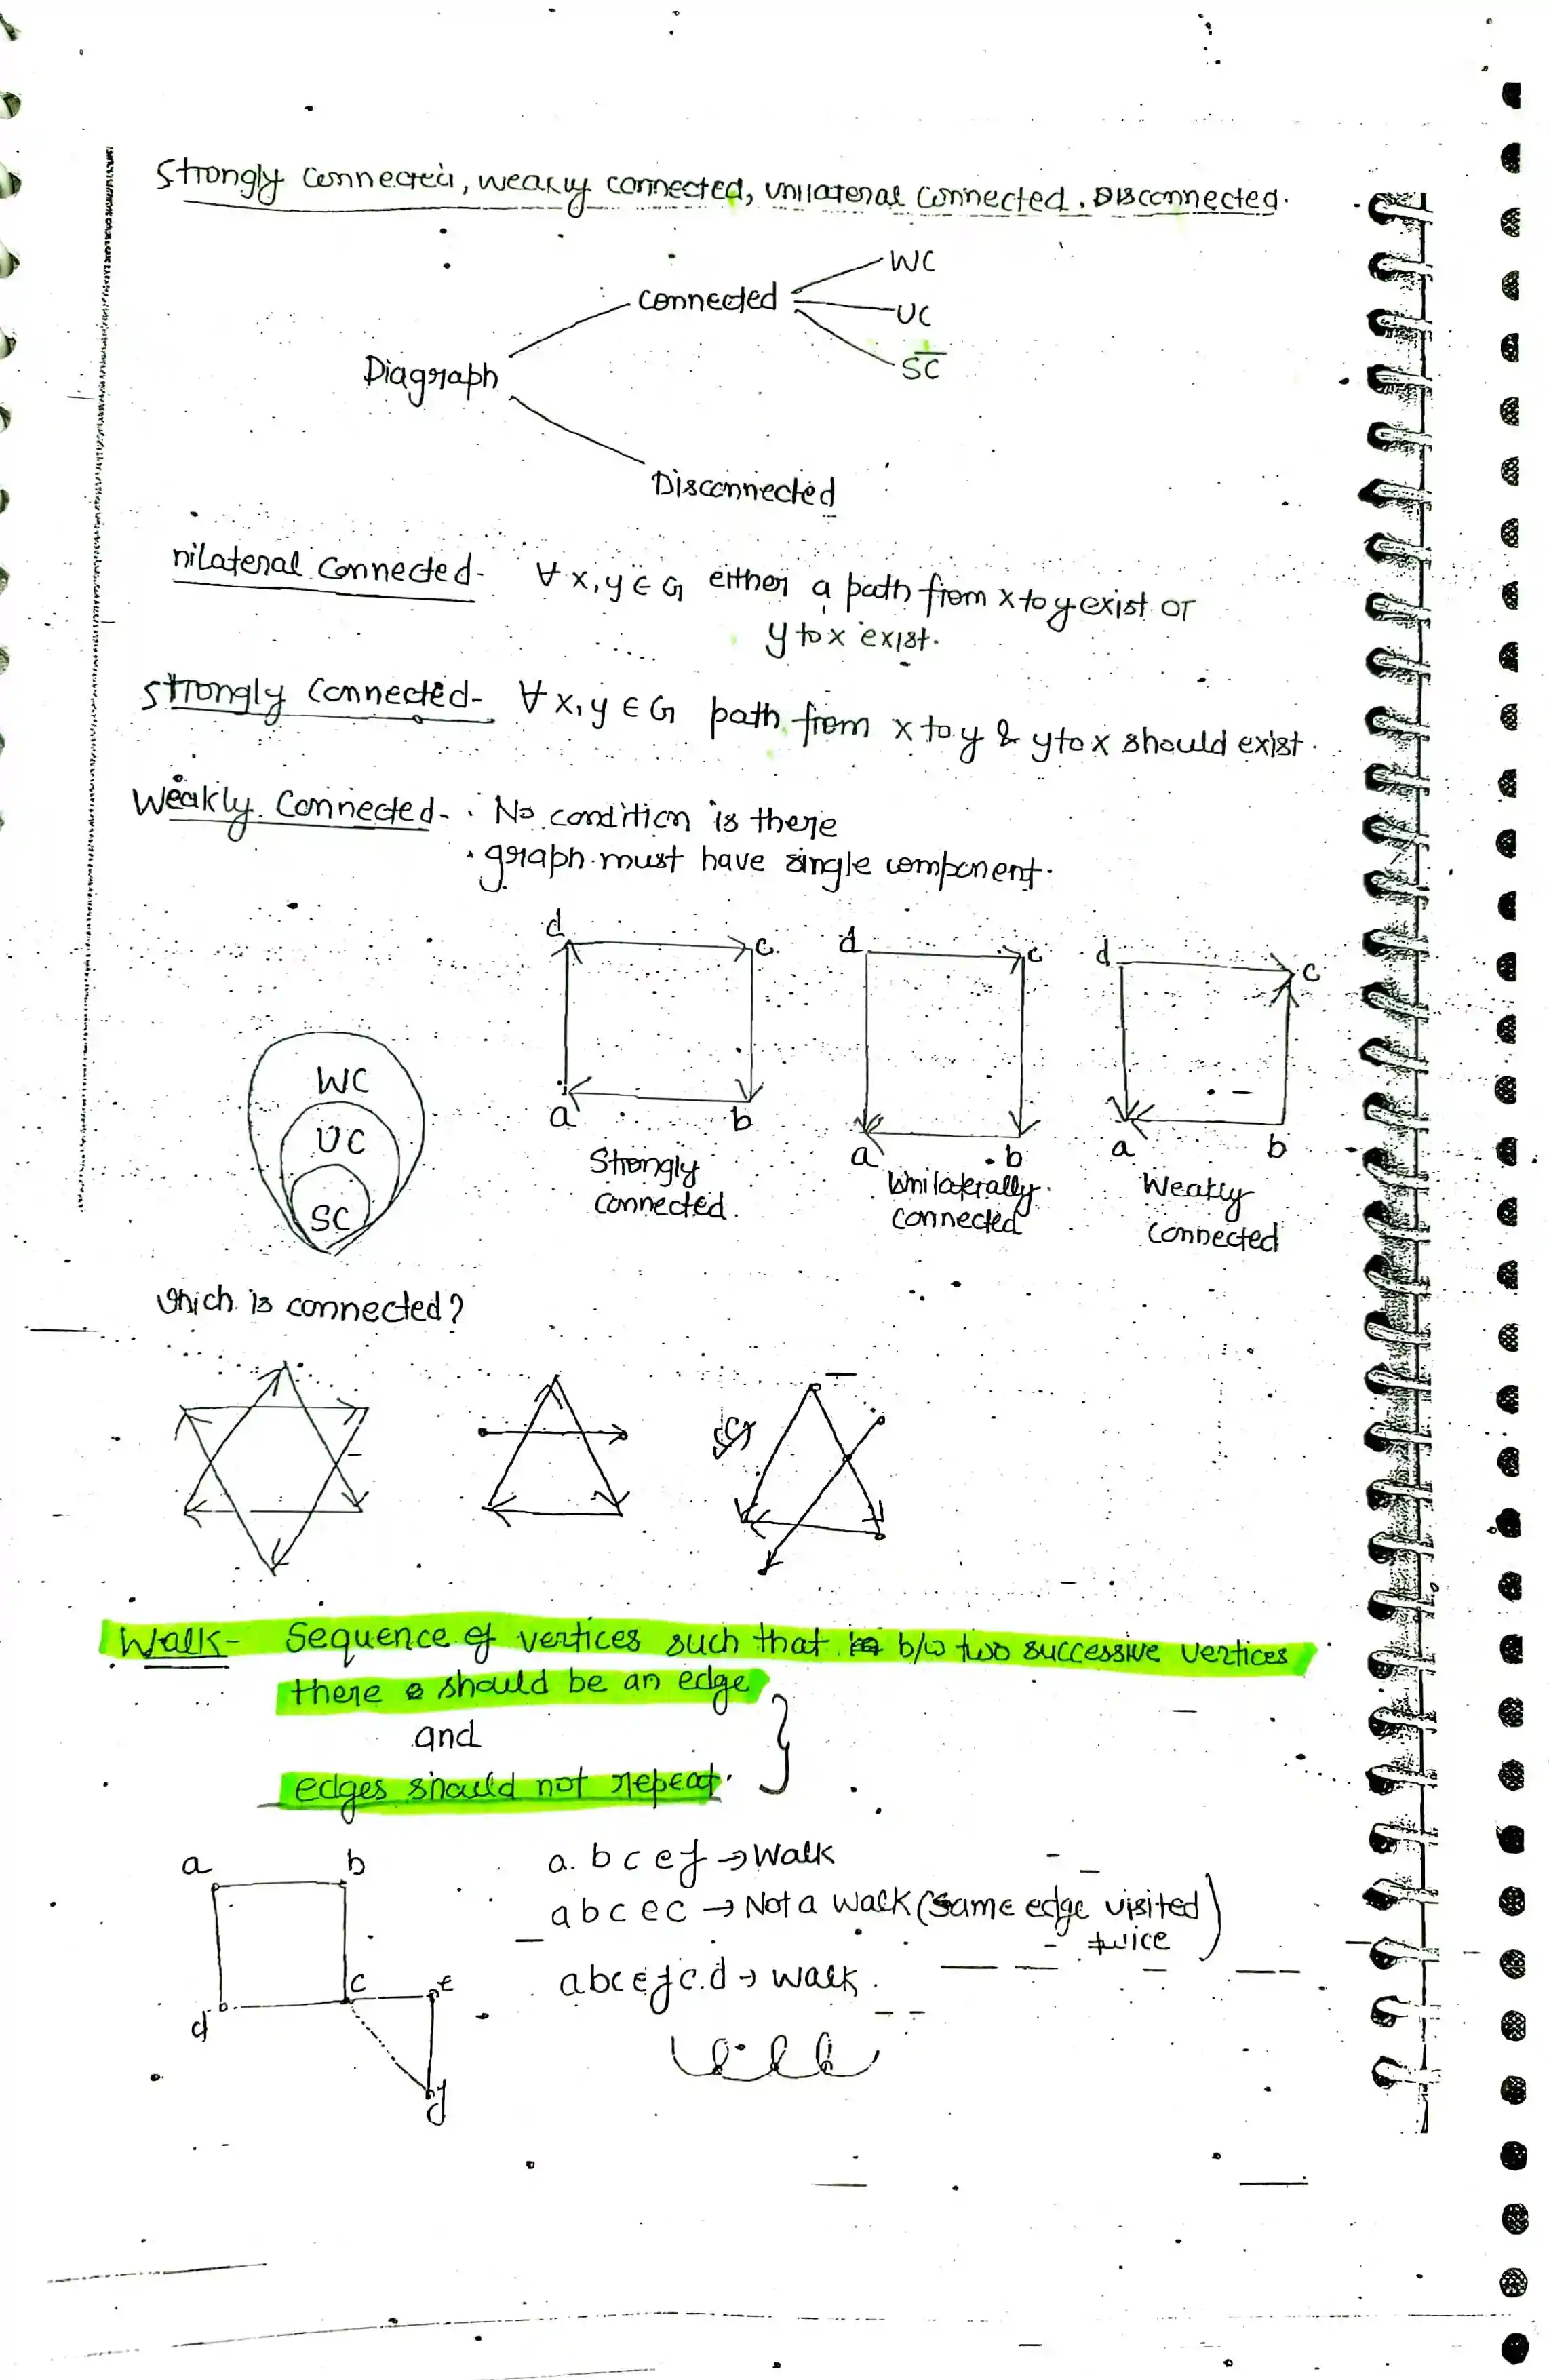 Strongly connected, weakly connected, unilateral connected, Disconnected.
WC
connected
UC
SC
Diagraph
Disconnected
nilateral connected- ∀ x,y ∈ G either a path from x to y exist or
y to x exist.
Strongly connected- ∀ x,y ∈ G path from x to y & y to x should exist.
Weakly connected- • No condition is there
• graph must have single component.
d c d c d c
WC
UC
SC
a b a b a b
Strongly connected.
Unilaterally connected
Weakly connected
Which is connected?
Walk- Sequence of vertices such that b/w two successive vertices
there should be an edge
and
edges should not repeat.
a b
a b c e f → Walk
a b c e c → Not a walk (same edge visited
twice)
c e
a b c e f c d → walk.
d
f